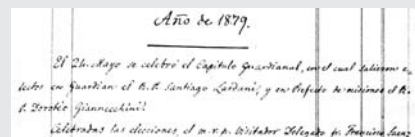 Año de 1879.
El 24 Mayo se celebró el Capitulo Guardianal, en el cual salieron e-
lectos en Guardian el R.P. Santiago Lardani; y en Prefecto de misiones el R.
P. Doroteo Giannecchini.
Celebradas las elecciones, el m.r.p. Visitador Delegado fr. Francisco